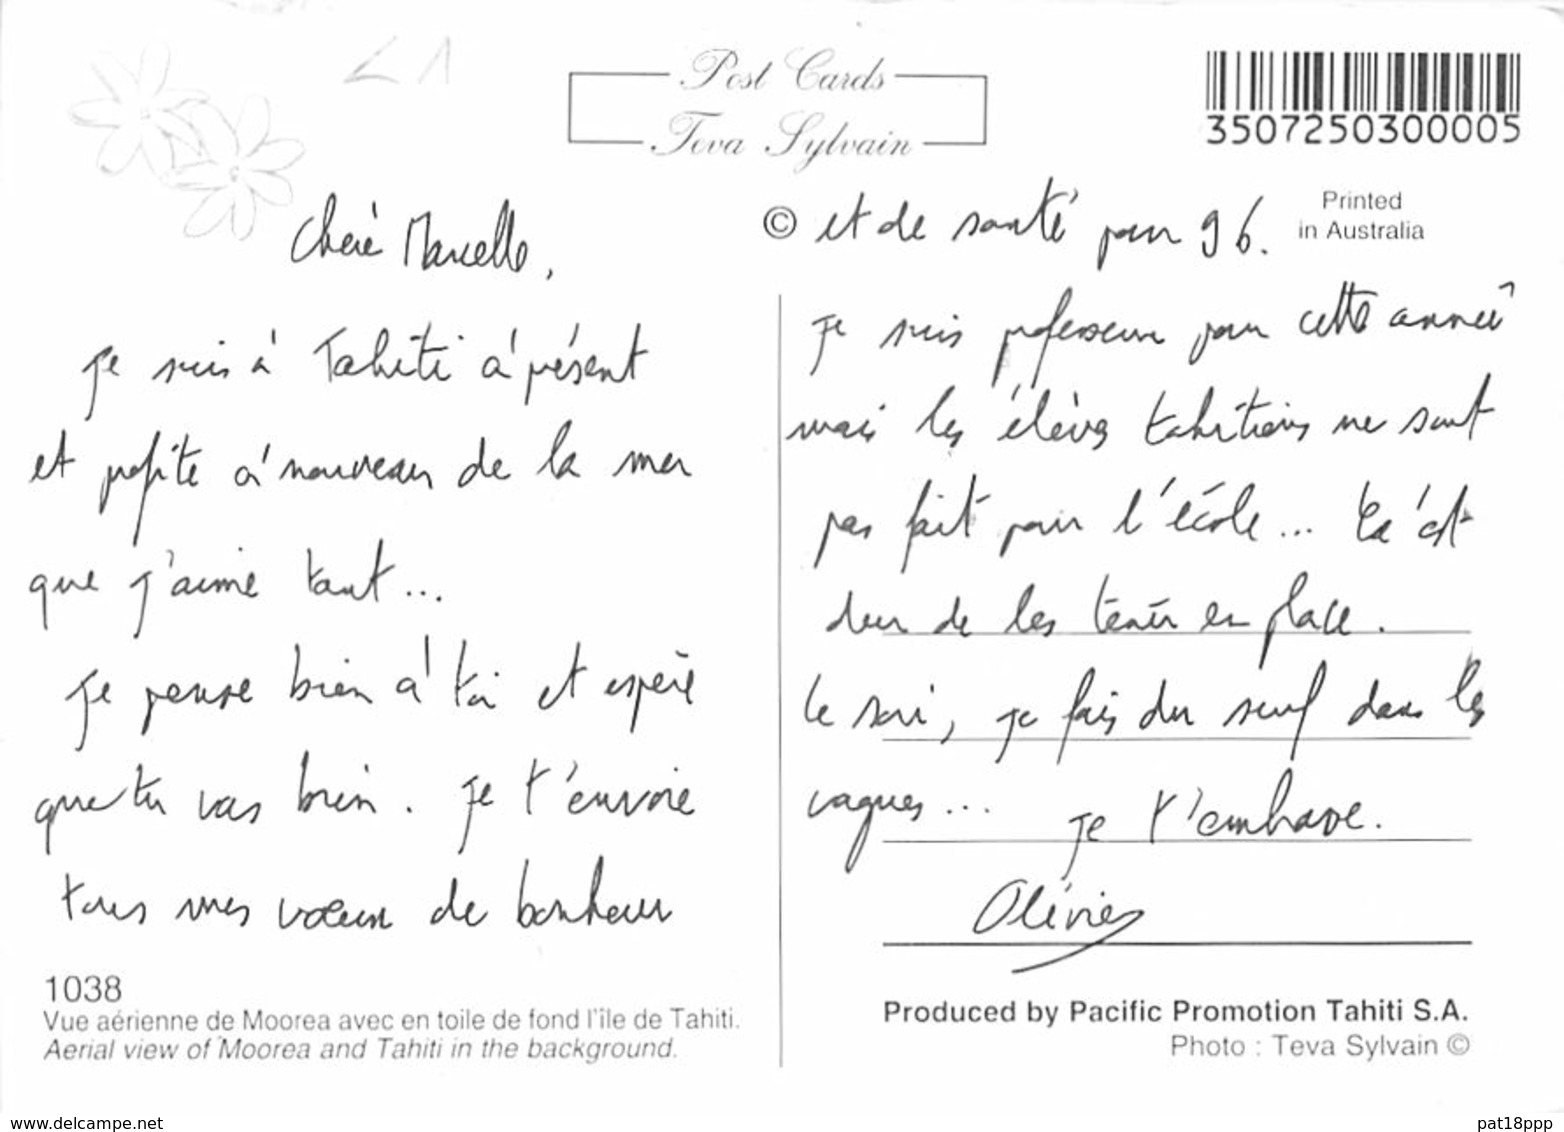 L1
Post Cards
Teva Sylvain
3507250300005
Printed
in Australia
Chère Marcelle,
Je suis à Tahiti à présent
et profite à nouveau de la mer
que j'aime tant...
Je pense bien à toi et espère
que tu vas bien. Je t'envoie
tous mes voeux de bonheur
1038
Vue aérienne de Moorea avec en toile de fond l'île de Tahiti.
Aerial view of Moorea and Tahiti in the background.
© et de santé pour 96.
Je suis professeur pour cette année
mais les élèves tahitiens ne sont
pas fait pour l'école... Ca c'est
dur de les tenir en place.
Le soir, je fais du surf dans les
vagues... Je t'embrasse.
Olivier
Produced by Pacific Promotion Tahiti S.A.
Photo : Teva Sylvain ©
www.delcampe.net
pat18ppp